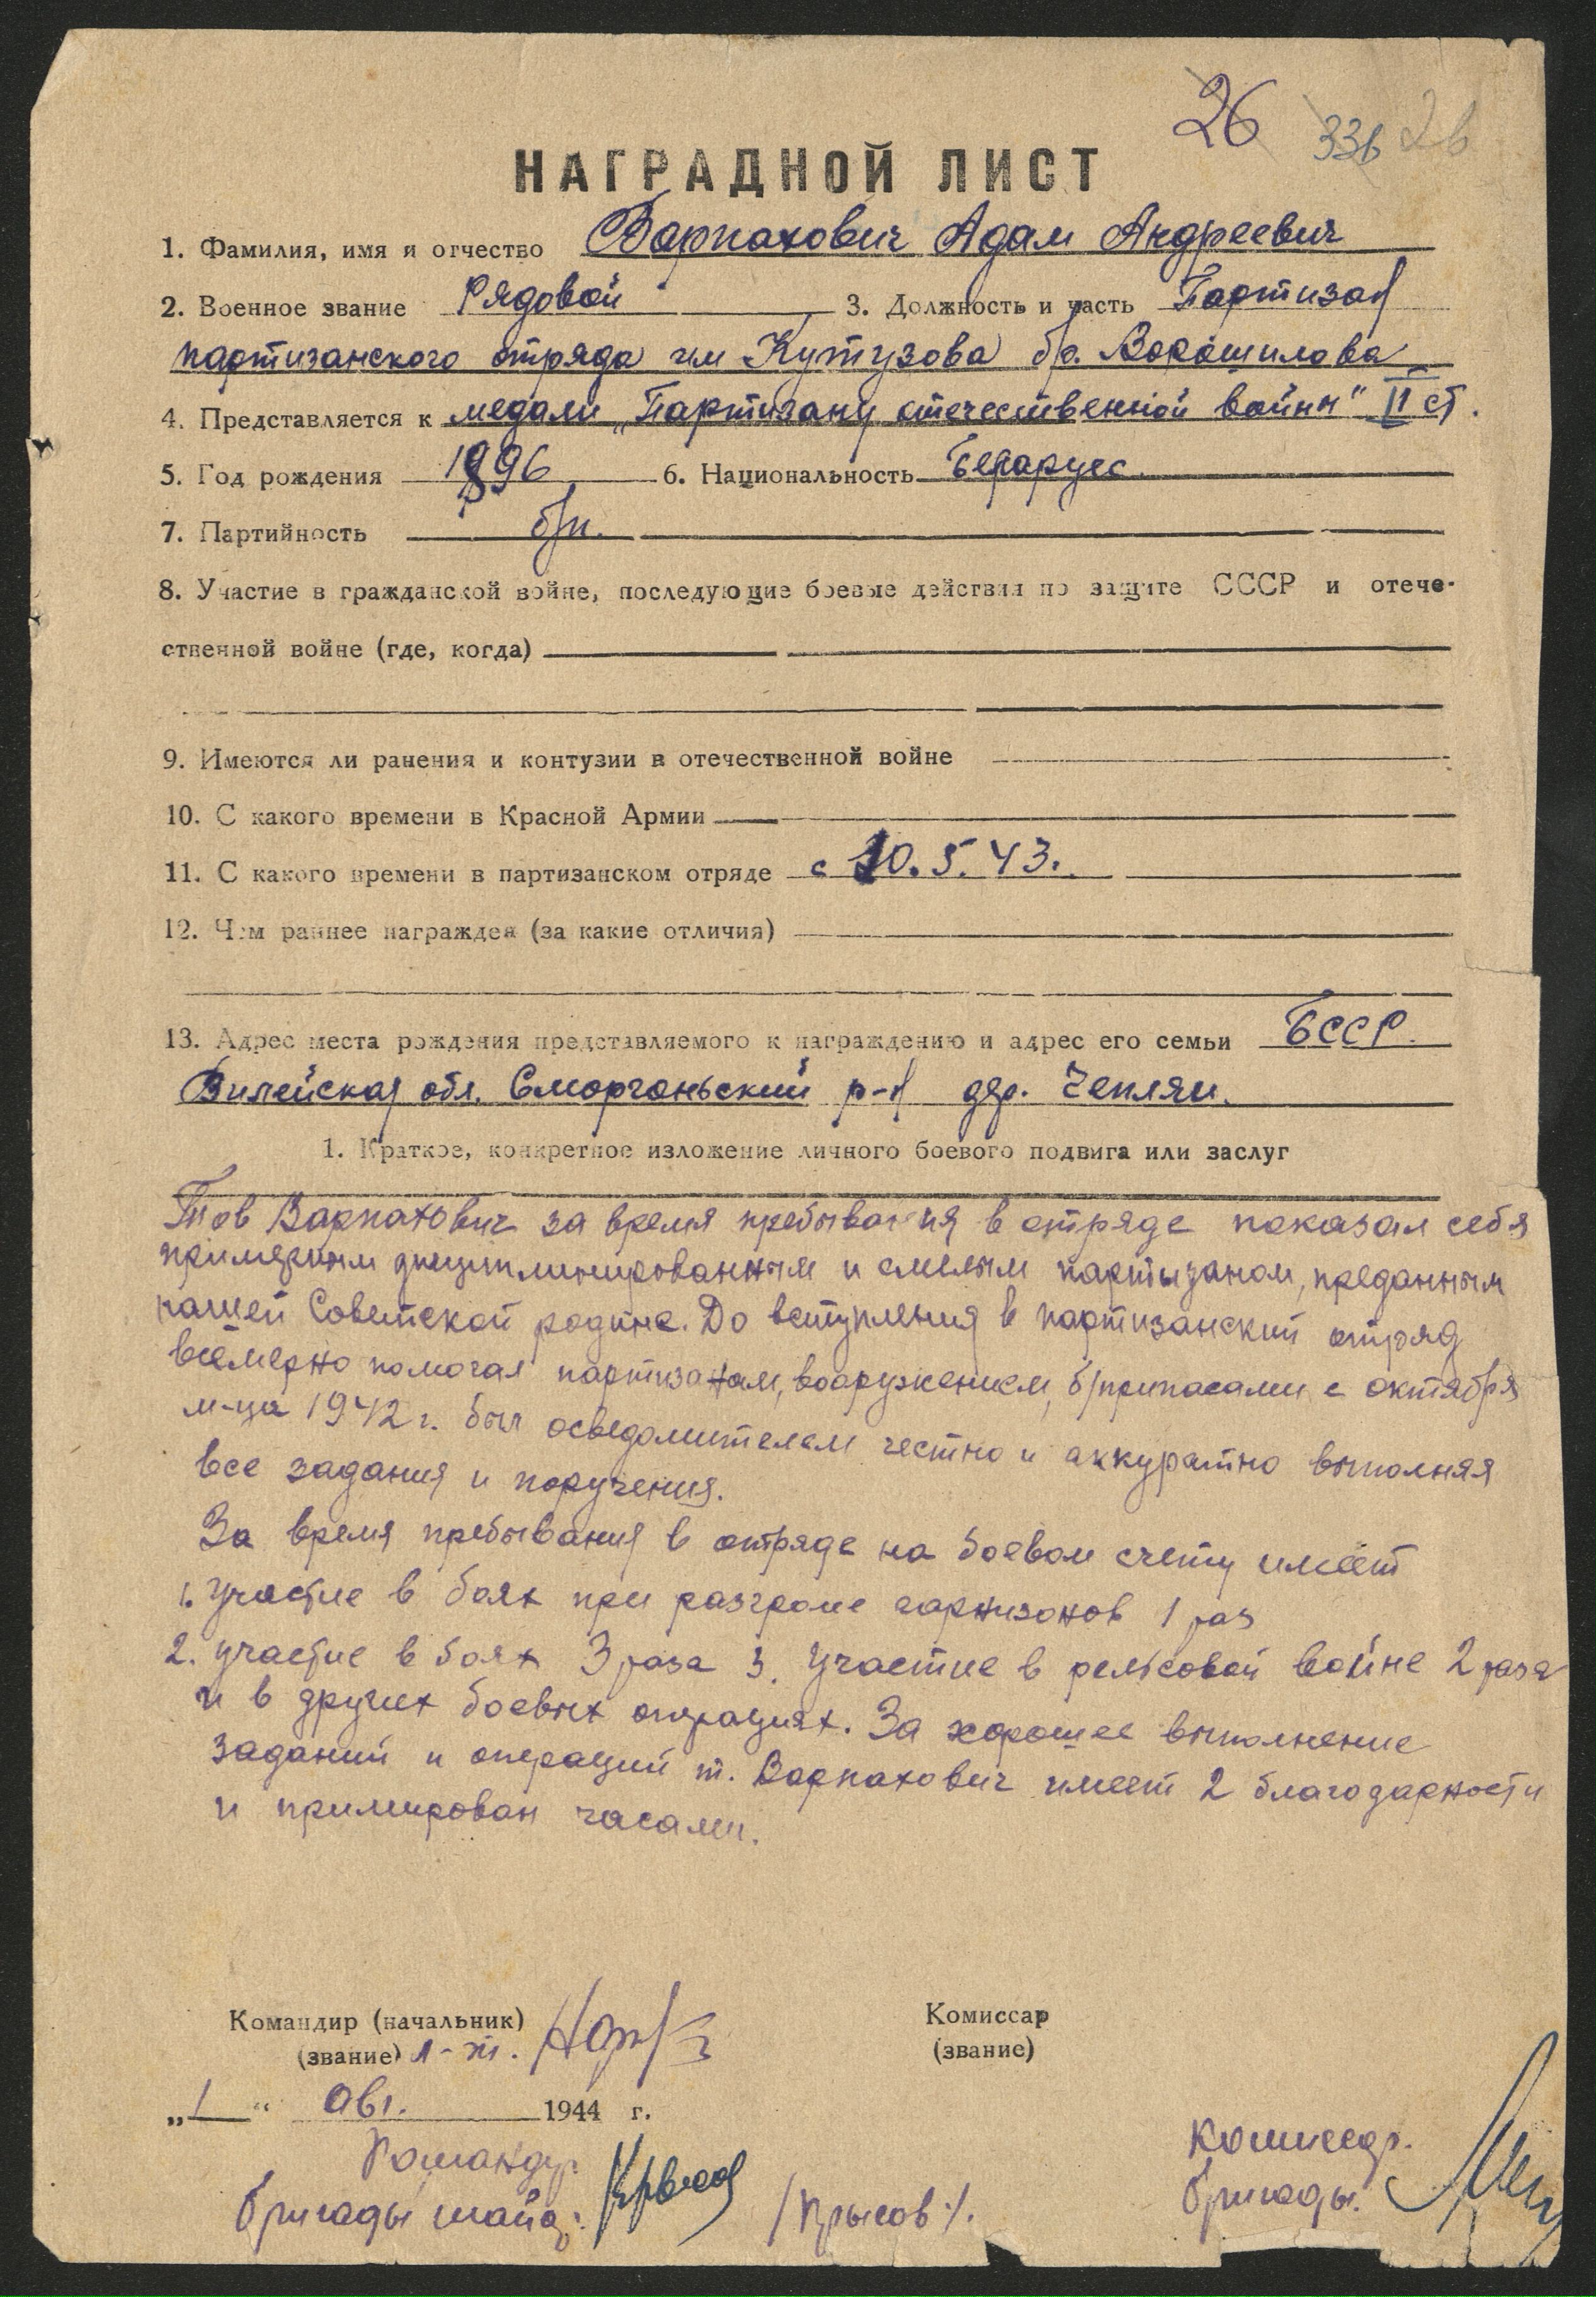 26 336 26
НАГРАДНОЙ ЛИСТ
1. Фамилия, имя и отчество Варпахович Адам Андреевич
2. Военное звание Рядовой 3. Должность и часть Партизан
партизанского отряда им Кутузова бр. Ворошилова
4. Представляется к медали „Партизану отечественной войны" II ст.
5. Год рождения 1896 6. Национальность Беларус.
7. Партийность б/п.
8. Участие в гражданской войне, последующие боевые действия по защите СССР и отече-
ственной войне (где, когда)
9. Имеются ли ранения и контузии в отечественной войне
10. С какого времени в Красной Армии
11. С какого времени в партизанском отряде с 10.5.43.
12. Чем раннее награжден (за какие отличия)
13. Адрес места рождения представляемого к награждению и адрес его семьи БССР.
Вилейская обл. Сморгоньский р-н дер. Чепляи.
1. Краткое, конкретное изложение личного боевого подвига или заслуг
Тов Варпахович за время пребывания в отряде показал себя
примерным дисциплинированным и смелым партызаном, преданным
нашей Советской родине. До вступления в партизанский отряд
всемерно помогал партизанам, вооружением, б/припасами с октября
м-ца 1942 г. был осведомителем честно и аккуратно выполняя
все задания и поручения.
За время пребывания в отряде на боевом счету имеет
1. Участие в боях при разгроме гарнизонов 1 раз
2. участие в боях 3 раза 3. Участие в рельсовой войне 2 раза
и в других боевых операциях. За хорошее выполнение
заданий и операций т. Варпахович имеет 2 благодарности
и примирован часами.
Командир (начальник) Комиссар
(звание) л-т. (звание)
„1" Авг. 1944 г.
Командир Комиссар.
бригады майор: /Крысов/. бригады.